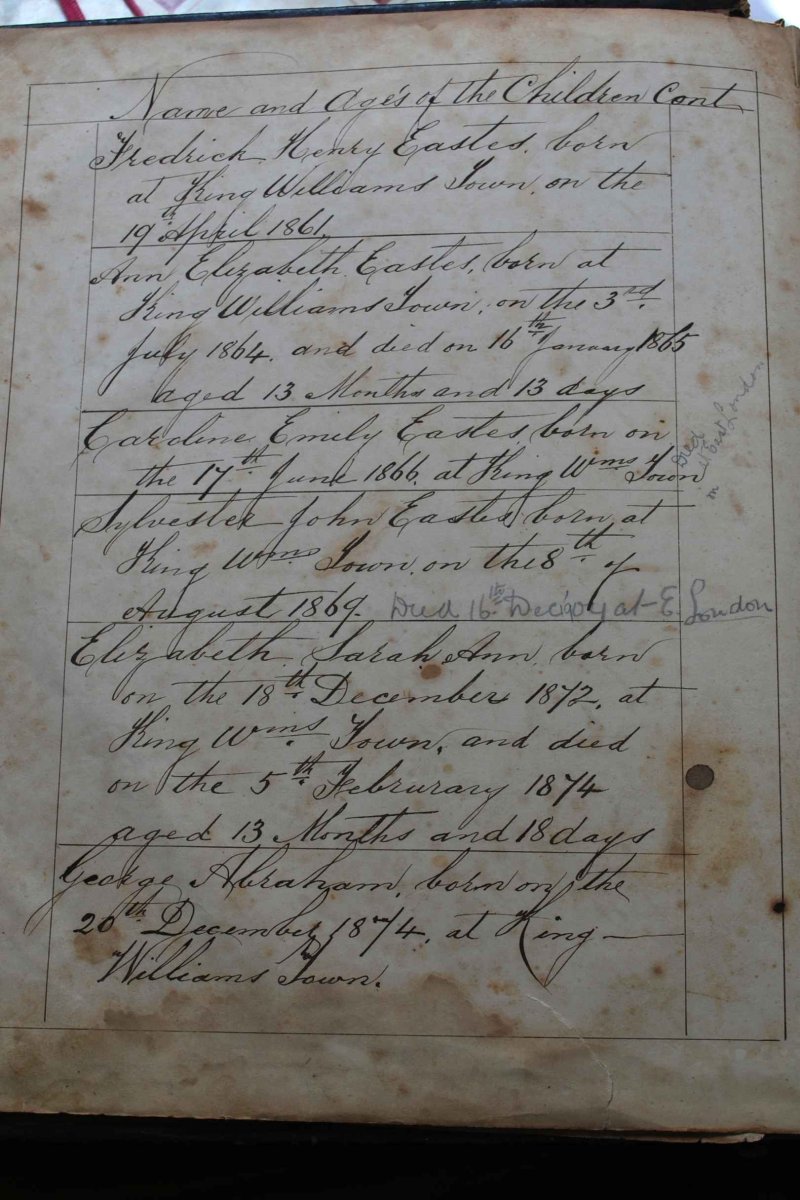 Name and Age's of the Children Cont
Fredrick Henry Eastes, born
at King Williams Town, on the
19th April 1861.
Ann Elizabeth Eastes, born at
King Williams Town, on the 3rd
July 1864. and died on 16th January 1865
aged 13 Months and 13 days
Caroline Emily Eastes, born on
the 17th June 1866. at King Wms Town
Died
at East London
in
Sylvester John Eastes, born at
King Wms Town, on the 8th of
August 1869. Died 16th Dec at E. London
Elizabeth Sarah Ann, born
on the 18th December 1872, at
King Wms Town, and died
on the 5th Februrary 1874
aged 13 Months and 18 days
George Abraham, born on the
20th December 1874, at King
Williams Town.